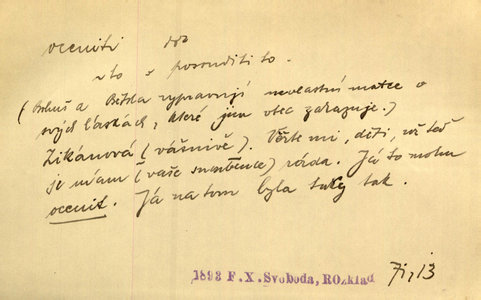 oceniti dok
~ to × posouditi to.
(Bohuš a Běta vypravují nevlastní matce o
svých láskách, které jim otec zakazuje.)
Zikánová (vášnivě). Věřte mi, děti, že toť
je mám (vaše) ráda. Já to mohu
ocenit. Já na tom byla taky tak.
1893 F.X.Svoboda, ROzklad
71,13